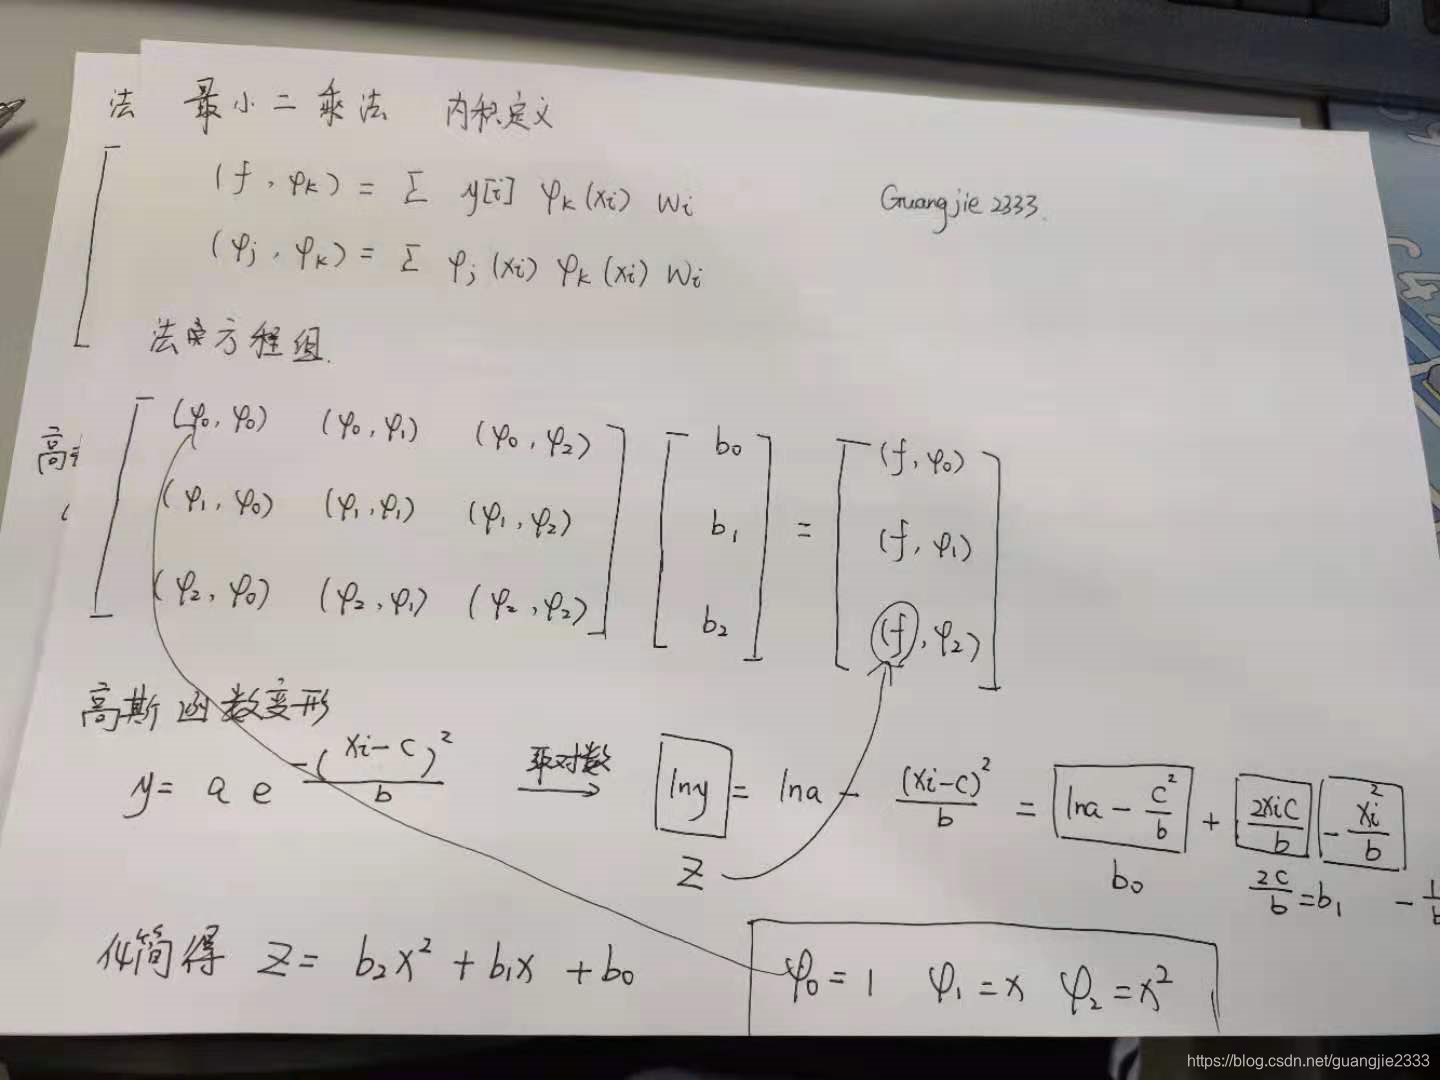 法 最小二乘法 内积定义
(f, φk) = Σ y[i] φk(xi) wi
Guangjie 2333.
(φj, φk) = Σ φj(xi) φk(xi) wi
法方程组.
高
(φ0, φ0) (φ0, φ1) (φ0, φ2) b0 (f, φ0)
(φ1, φ0) (φ1, φ1) (φ1, φ2) b1 = (f, φ1)
(φ2, φ0) (φ2, φ1) (φ2, φ2) b2 (f, φ2)
高斯函数变形
y = a e^(-(xi-c)²/b) 取对数 → lny = lna - (xi-c)²/b = lna - c²/b + 2xic/b - xi²/b
z b0 2c/b = b1 - 1/b
化简得 z = b2x² + b1x + b0
φ0 = 1 φ1 = x φ2 = x²
https://blog.csdn.net/guangjie2333